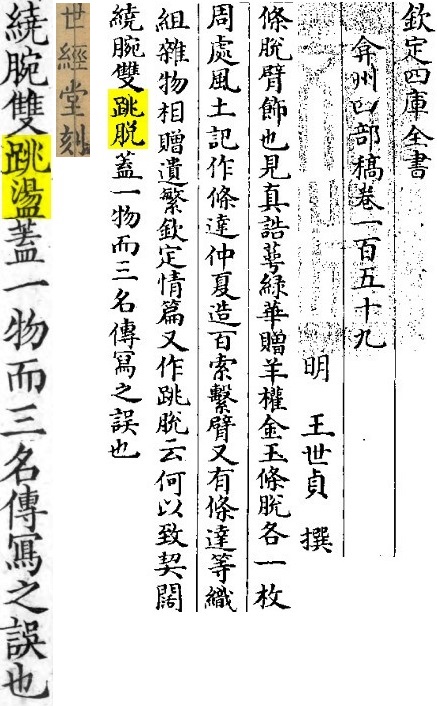 欽定四庫全書
弇州四部稿卷一百五十九
明 王世貞 撰
條脫臂飾也見真誥萼緑華贈羊權金玉條脫各一枚
周處風土記作條達仲夏造百索繫臂又有條達等織
組雜物相贈遺繁欽定情篇又作跳脫云何以致契闊
繞腕雙跳脫蓋一物而三名傳寫之誤也
世經堂刻
繞腕雙跳盪蓋一物而三名傳寫之誤也